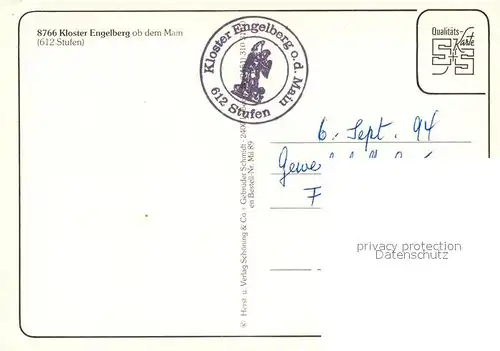 8766 Kloster Engelberg ob dem Main
(612 Stufen)
Kloster Engelberg o.d. Main
612 Stufen
Qualitäts-
Karte
S+S
6. Sept. 94
© Herst. u. Verlag Schöning & Co + Gebrüder Schmidt
en Bestell-Nr. Mil 89
privacy protection
Datenschutz